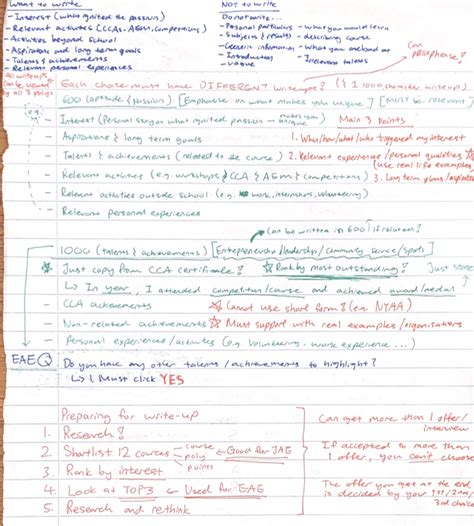 Want to write
Not to write
- Interest (what ignited the passion)
Do not write...
- Relevant activities (CCAs, A&M, competitions)
- Personal particulars - what you would learn
- Activities beyond school
- Subjects & results - describing course
- Aspirations and long term goals
- Generic information - What you are bad at
- Talents & achievements
- Introduction - Irrelevant talents
- Relevant personal experiences
- Vague
Can paraphrase?
All write-ups can be viewed by all 5 polys
Each choice must have DIFFERENT write-ups? (& 1 1000 character write-up)
600 (aptitude & passion) [Emphasise on what makes you unique] [Must be relevant]
e.g.
- Interest (Personal story on what ignited passion - makes you unique) Main 3 Points
- Aspirations & long term goals
1. When/how/what/who triggered my interest
- Talents & achievements (related to the course)
2. Relevant experience/personal qualities
use real life examples
- Relevant activities (e.g. workshops & CCA & A&M & competitions)
3. Long term plans/aspirations
- Relevant activities outside school (e.g. work, internships, volunteering)
- Relevant personal experiences
Can be written in 600 if related?
1000 (talents & achievements) [Entrepreneurship/leadership/community service/sports]
Just copy from CCA certificate? Rank by most outstanding? Just state
↳ In year, I attended competition/course and achieved award/medal
- CCA achievements
Cannot use short form? (e.g. NYAA)
- Non-related achievements
Must support with real examples/organisations
- Personal experiences/activities (e.g. Volunteering, work experience...)
EAE Q
Do you have any other talents/achievements to highlight?
↳ I Must click YES
Preparing for write-up
1. Research?
2. Shortlist 12 courses course poly points Good for JAE
3. Rank by interest
4. Look at TOP3 Used for EAE
5. Research and rethink
Can get more than 1 offer/interview
If accepted to more than 1 offer, you can't choose
The offer you get at the end is decided by your 1st/2nd/3rd choice